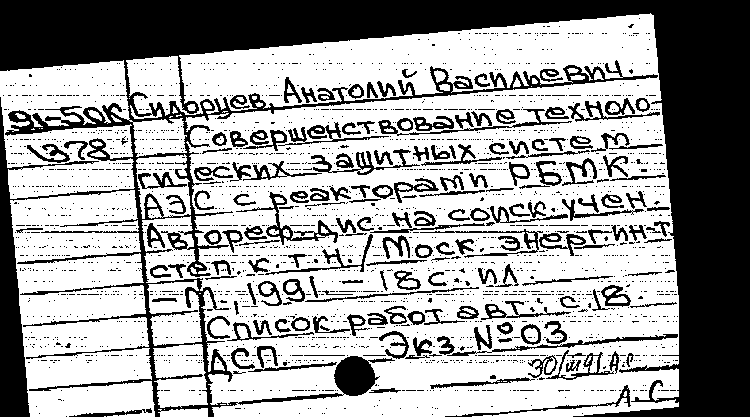 91-50К Сидорцев, Анатолий Васильевич.
1378 Совершенствование техноло-
гических защитных систем
АЭС с реакторами РБМК:
Автореф. дис. на соиск. учен.
степ. к.т.н. / Моск. энерг. ин-т
– М., 1991. – 18 с.: ил.
Список работ авт.: с. 18.
ДСП. Экз. № 03
30/III 91. А.С
А.С